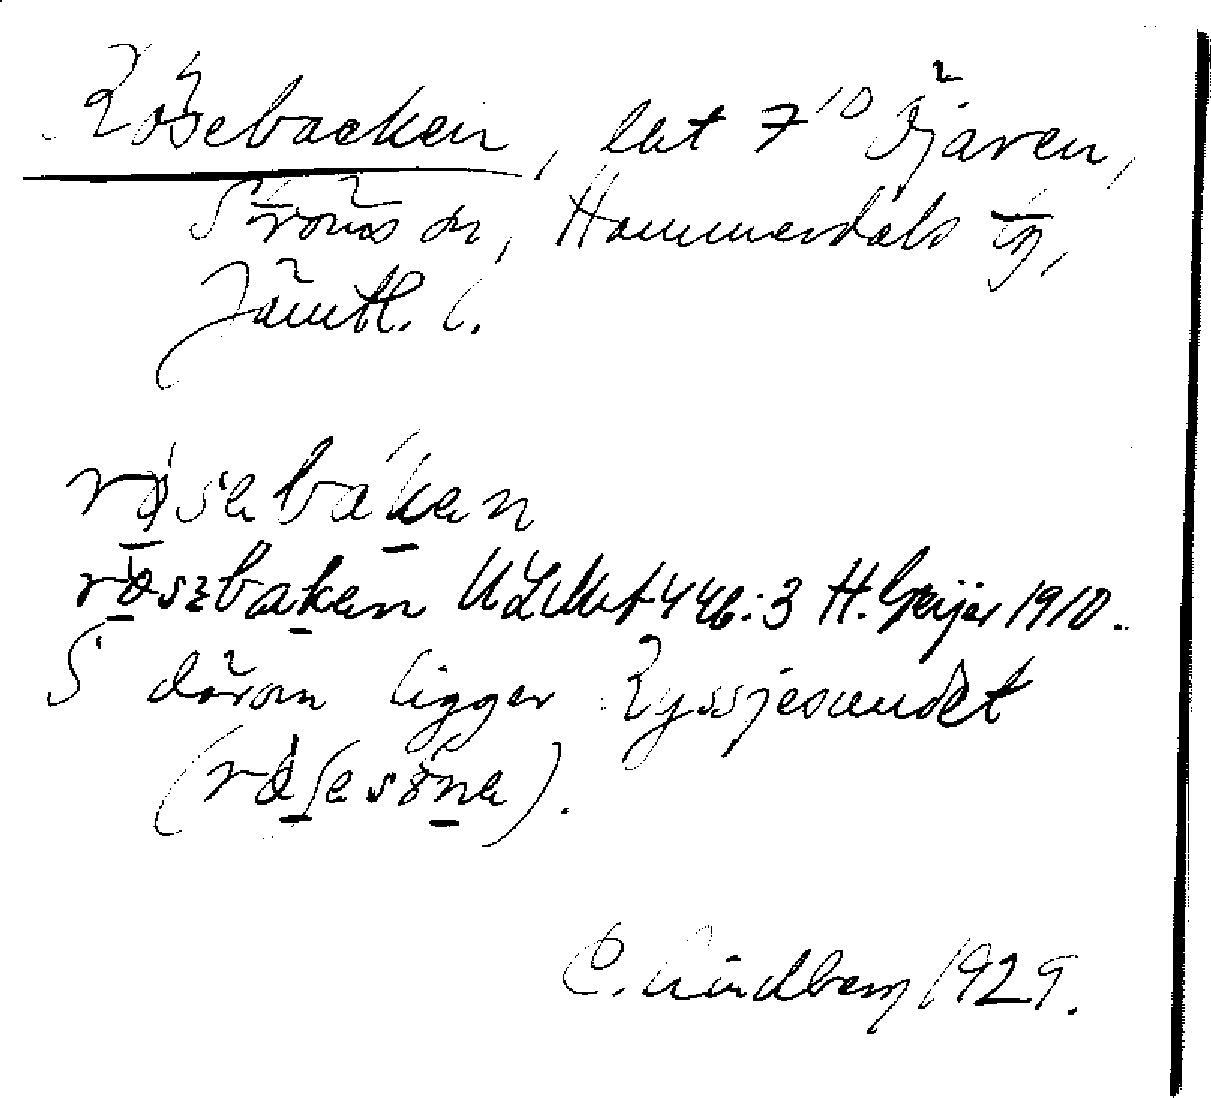 Rösebacken, lht 7¹⁰ Öjaren,
Ströms sn, Hammerdals tg,
Jämtl. l.
røsebaken
røsebaken ULMA 446:3 H. Geijer 1910.
S därom ligger Ryssjesundet
(røsesøne).
C. Lindberg 1929.